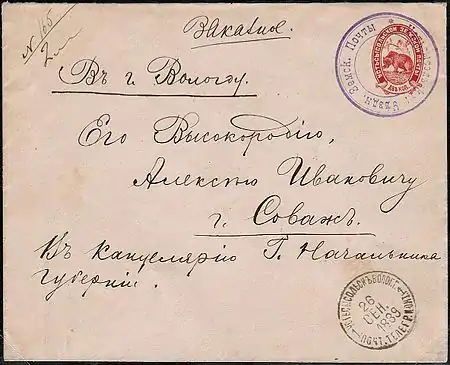 № 165
2 лот
Заказное.
Въ г. Вологду.
Его Высокородію,
Алексѣю Ивановичу
г. Соважъ.
Въ канцелярію Г. Начальника
губерніи.
Уѣздн. Земск. Почты
УСТЬСЫСОЛЬСКЪ ВОЛОГ.
26
СЕН.
1899
ПОЧТ. ТЕЛЕГР. КОНТ.